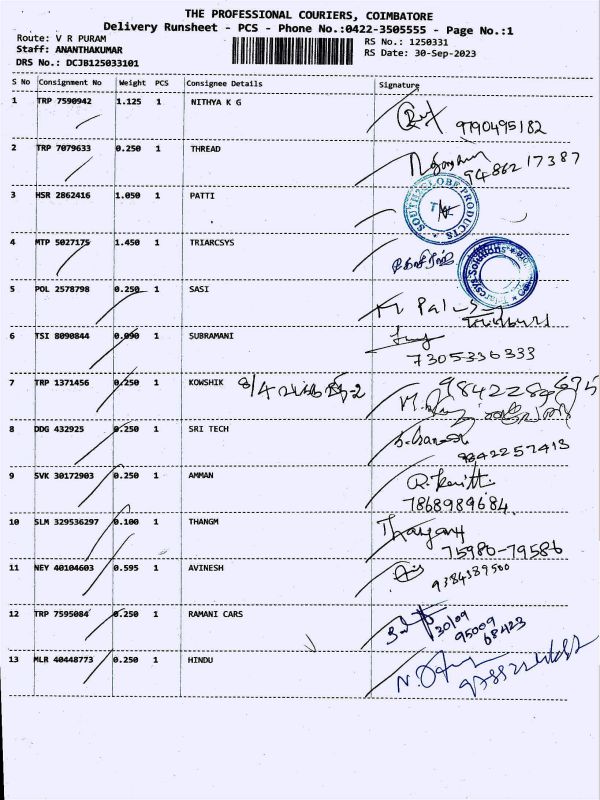 THE PROFESSIONAL COURIERS, COIMBATORE
Delivery Runsheet - PCS - Phone No.:0422-3505555 - Page No.:1
Route: V R PURAM
RS No.: 1250331
Staff: ANANTHAKUMAR
RS Date: 30-Sep-2023
DRS No.: DCJB125033101
S No Consignment No Weight PCS Consignee Details Signature
1 TRP 7590942 1.125 1 NITHYA K G
9790495182
2 TRP 7079633 0.250 1 THREAD
9486217387
3 HSR 2862416 1.050 1 PATTI
SOUTH2GLOBE PRODUCTS
4 MTP 5027175 1.450 1 TRIARCSYS
5 POL 2578798 0.250 1 SASI
6 TSI 8090844 0.090 1 SUBRAMANI
7305336333
7 TRP 1371456 0.250 1 KOWSHIK 8/4
8 DDG 432925 0.250 1 SRI TECH
9842257413
9 SVK 30172903 0.250 1 AMMAN
7868989684
10 SLM 329536297 0.100 1 THANGM
75980-79586
11 NEY 40104603 0.595 1 AVINESH
9384389500
12 TRP 7595084 0.250 1 RAMANI CARS
30/09
95009
68423
13 MLR 40448773 0.250 1 HINDU